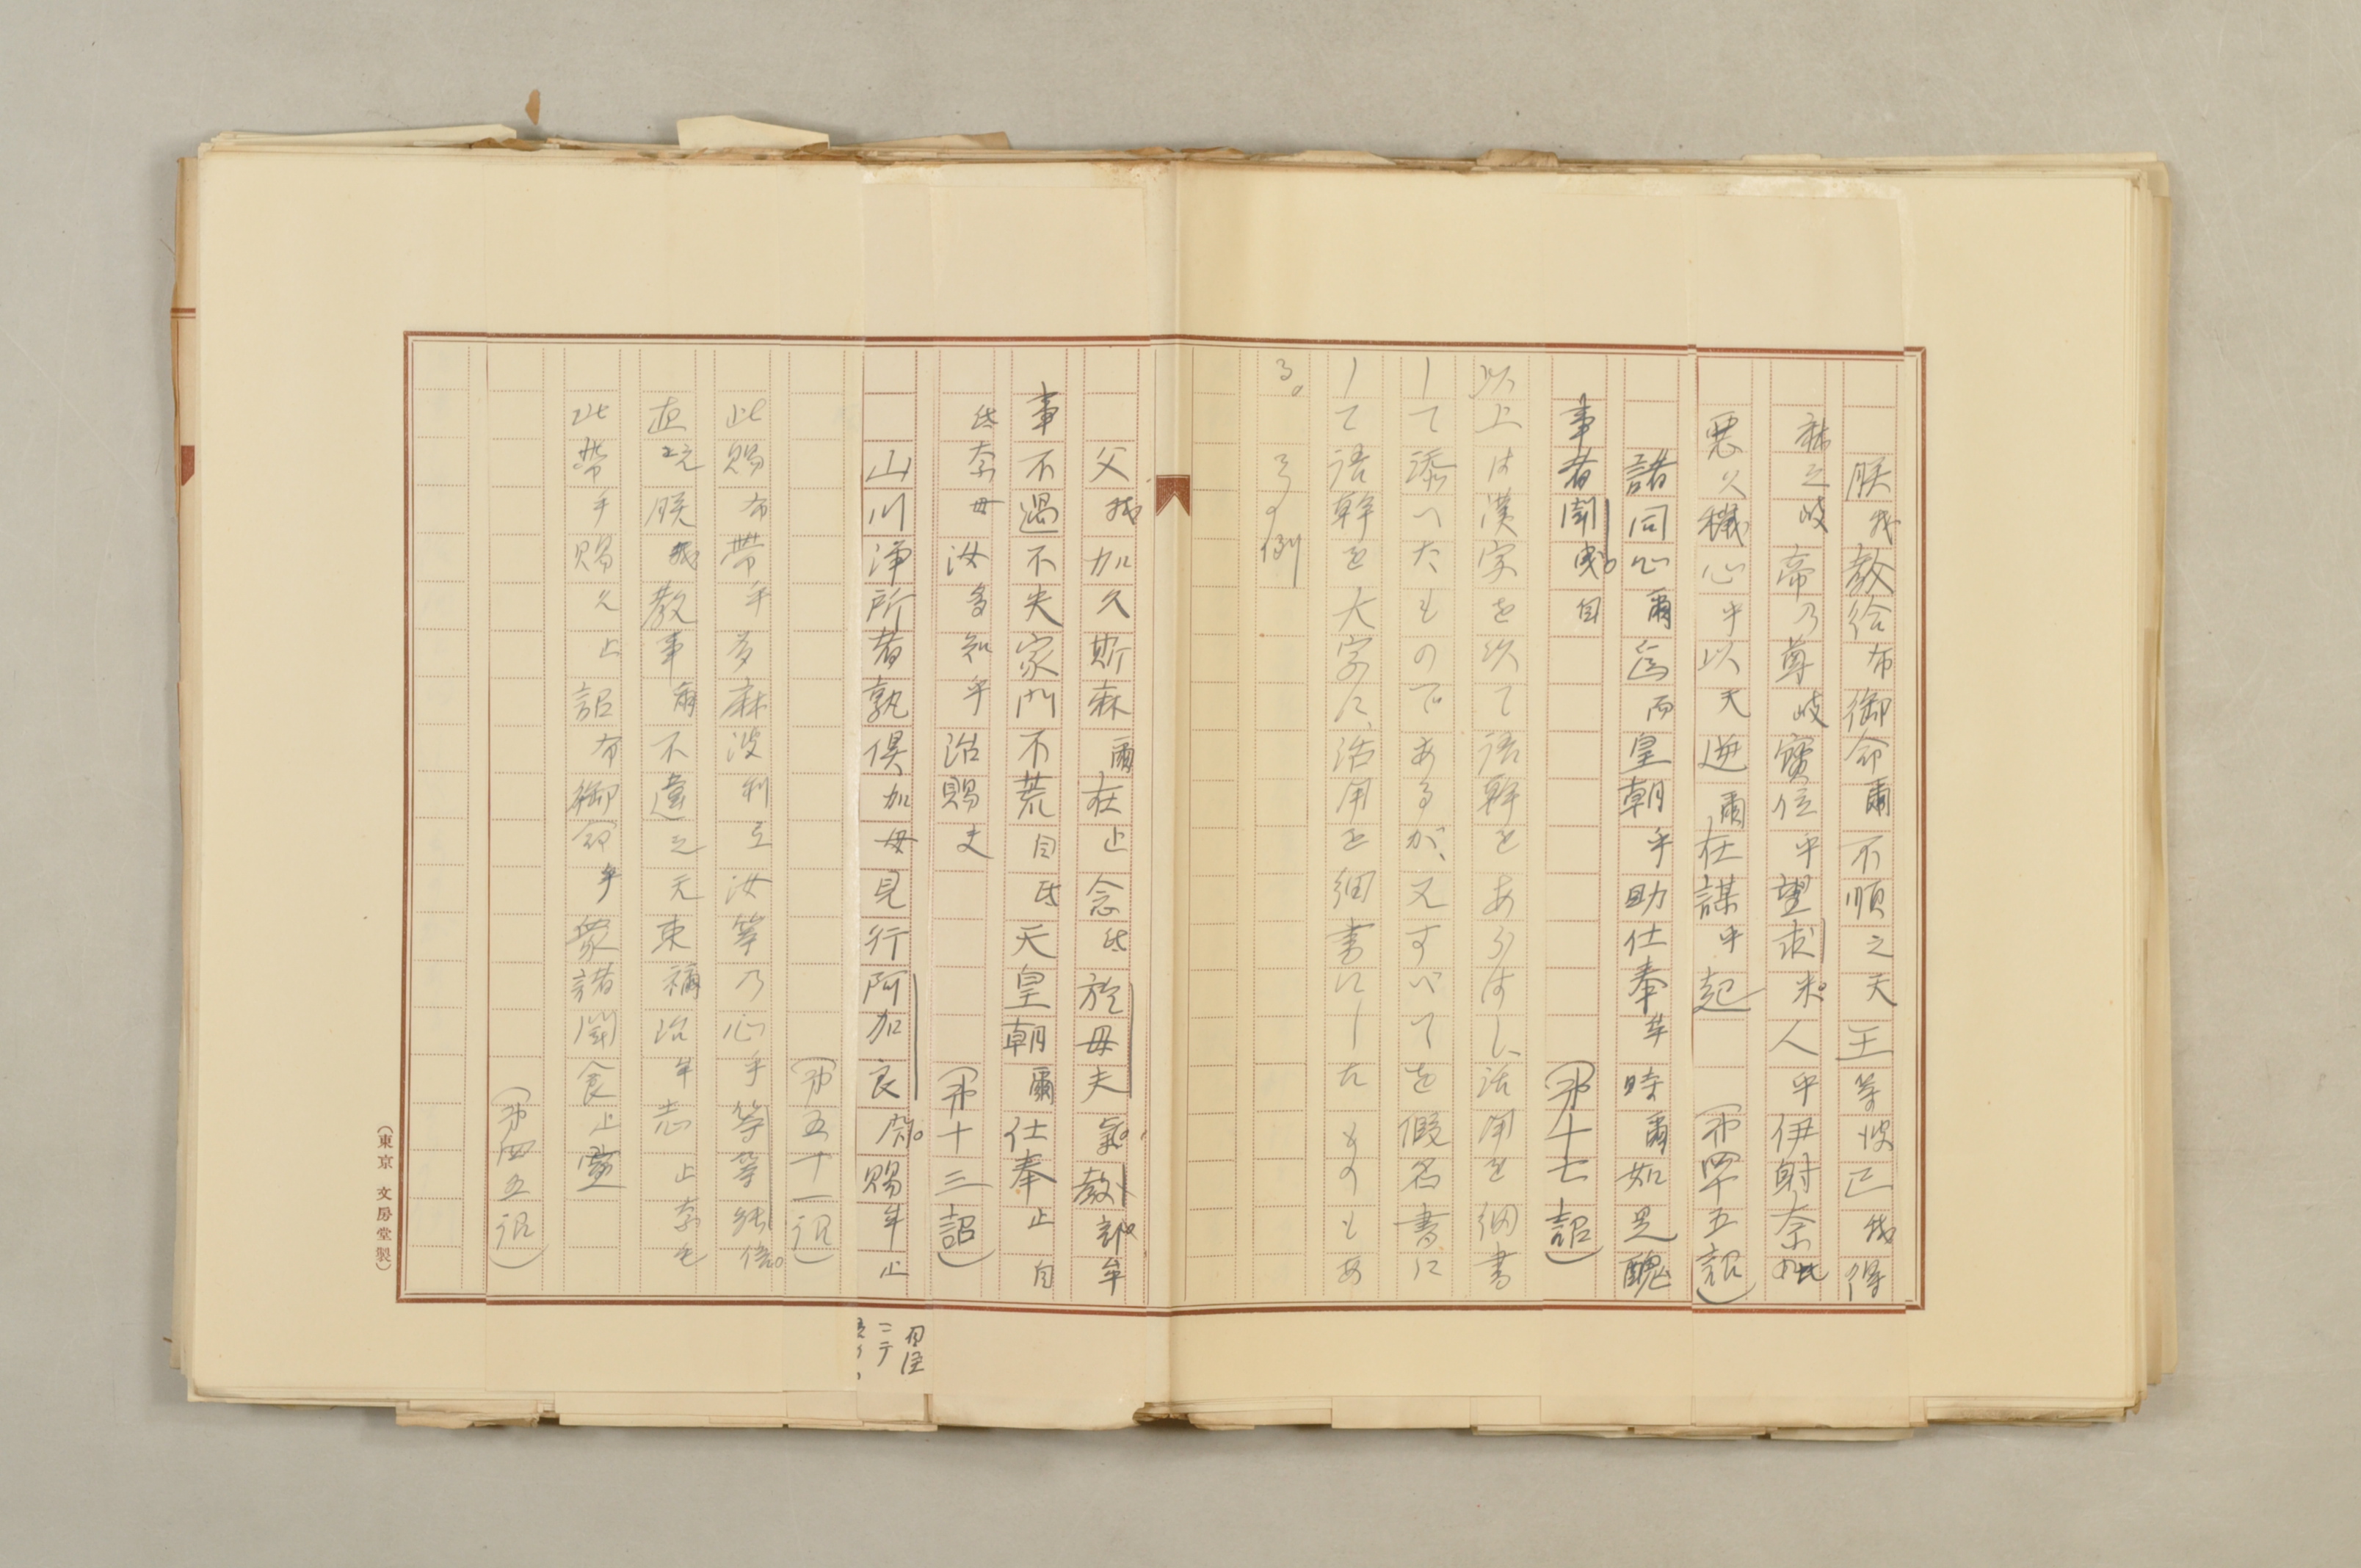 朕我教給布御命爾不順之天王等波己我得
麻之岐帝乃尊岐寳位乎望求米人乎伊射奈比
惡久穢心乎以天逆爾在謀乎起（第四十五詔）
諸同心爾爲而皇朝乎助仕奉牟時爾如是醜
事者聞曳自（第十七詔）
以上は漢字を以て語幹をあらはし、活用を細書
して添へたものであるが、又すべてを假名書に
して語幹を大字に、活用を細書にしたものもあ
る。その例
父我加久斯麻爾在止念弖於母夫氣教祁牟
事不過不失家門不荒自弖天皇朝爾仕奉止自
弖奈母汝多知乎治賜夫（第十三詔）
山川浄所者孰倶加母見行阿加良閇賜牟止
（第五十一詔）
此賜布帶乎多麻波利弖汝等乃心乎等等能倍
直之朕我教事爾不違之天束禰治牟志止奈毛
此帶乎賜久止詔布御命乎衆諸聞食止宣
（第四五詔）
（東京 文房堂製）